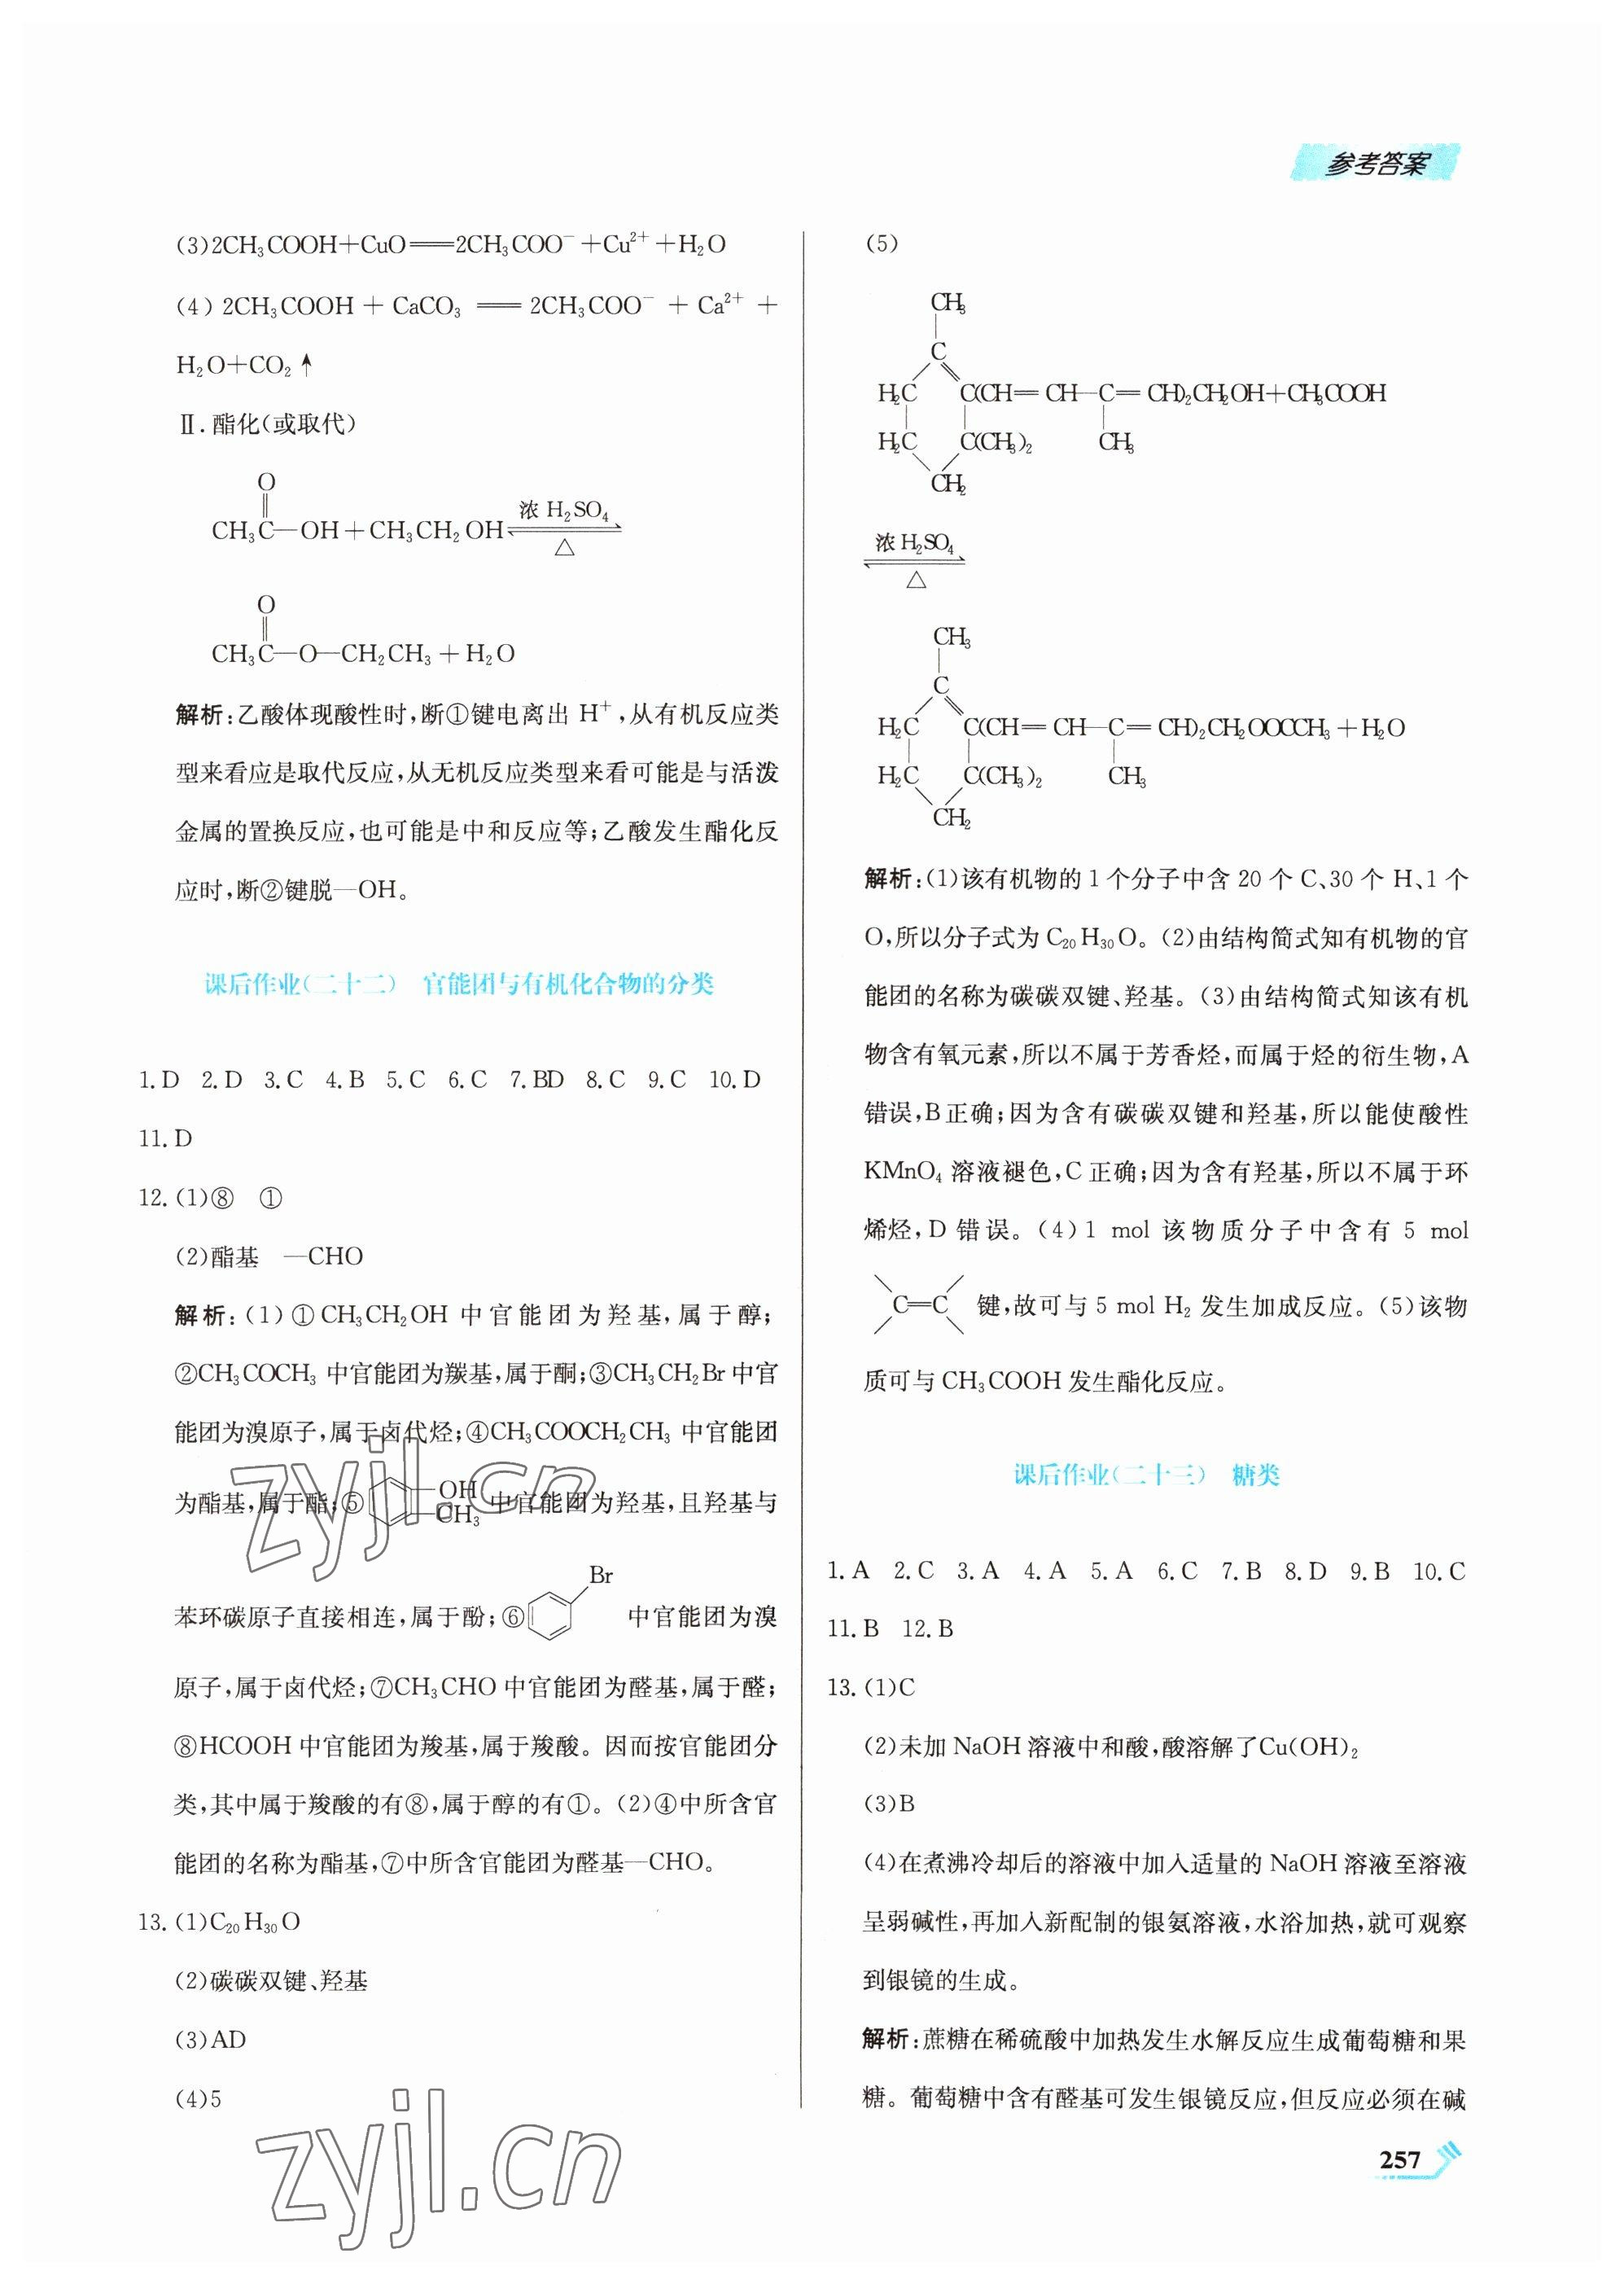 参考答案
(3)2CH₃COOH+CuO══2CH₃COO⁻+Cu²⁺+H₂O
(4) 2CH₃COOH + CaCO₃ ══ 2CH₃COO⁻ + Ca²⁺ +
H₂O+CO₂↑
Ⅱ.酯化(或取代)
O
‖
浓 H₂SO₄
CH₃C—OH+CH₃CH₂OH⇌
△
O
‖
CH₃C—O—CH₂CH₃+H₂O
解析:乙酸体现酸性时,断①键电离出 H⁺,从有机反应类
型来看应是取代反应,从无机反应类型来看可能是与活泼
金属的置换反应,也可能是中和反应等;乙酸发生酯化反
应时,断②键脱—OH。
课后作业(二十二) 官能团与有机化合物的分类
1.D 2.D 3.C 4.B 5.C 6.C 7.BD 8.C 9.C 10.D
11.D
12.(1)⑧ ①
(2)酯基 —CHO
解析:(1)①CH₃CH₂OH 中官能团为羟基,属于醇;
②CH₃COCH₃ 中官能团为羰基,属于酮;③CH₃CH₂Br中官
能团为溴原子,属于卤代烃;④CH₃COOCH₂CH₃ 中官能团
为酯基,属于酯;⑤ —OH —CH₃ 中官能团为羟基,且羟基与
Br
苯环碳原子直接相连,属于酚;⑥ 中官能团为溴
原子,属于卤代烃;⑦CH₃CHO中官能团为醛基,属于醛;
⑧HCOOH中官能团为羧基,属于羧酸。因而按官能团分
类,其中属于羧酸的有⑧,属于醇的有①。(2)④中所含官
能团的名称为酯基,⑦中所含官能团为醛基—CHO。
13.(1)C₂₀H₃₀O
(2)碳碳双键、羟基
(3)AD
(4)5
(5)
CH₃
C
H₂C C(CH═CH—C═CH)₂CH₂OH+CH₃COOH
H₂C C(CH₃)₂ CH₃
CH₂
浓 H₂SO₄
⇌
△
CH₃
C
H₂C C(CH═CH—C═CH)₂CH₂OOCCH₃+H₂O
H₂C C(CH₃)₂ CH₃
CH₂
解析:(1)该有机物的1个分子中含20个C、30个H、1个
O,所以分子式为C₂₀H₃₀O。(2)由结构简式知有机物的官
能团的名称为碳碳双键、羟基。(3)由结构简式知该有机
物含有氧元素,所以不属于芳香烃,而属于烃的衍生物,A
错误,B正确;因为含有碳碳双键和羟基,所以能使酸性
KMnO₄溶液褪色,C正确;因为含有羟基,所以不属于环
烯烃,D错误。(4)1 mol 该物质分子中含有 5 mol
C═C 键,故可与5 mol H₂ 发生加成反应。(5)该物
质可与CH₃COOH发生酯化反应。
课后作业(二十三) 糖类
1.A 2.C 3.A 4.A 5.A 6.C 7.B 8.D 9.B 10.C
11.B 12.B
13.(1)C
(2)未加NaOH溶液中和酸,酸溶解了Cu(OH)₂
(3)B
(4)在煮沸冷却后的溶液中加入适量的NaOH溶液至溶液
呈弱碱性,再加入新配制的银氨溶液,水浴加热,就可观察
到银镜的生成。
解析:蔗糖在稀硫酸中加热发生水解反应生成葡萄糖和果
糖。葡萄糖中含有醛基可发生银镜反应,但反应必须在碱
zyjl.cn
zyjl.cn
257